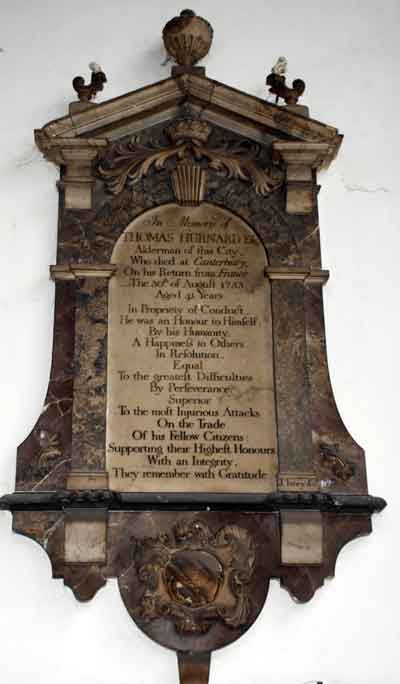 In Memory of
THOMAS HURNARD Esq
Alderman of this City,
Who died at Canterbury,
On his Return from France
The 30th of August 1753
Aged 41 Years
In Propriety of Conduct
He was an Honour to Himself.
By his Humanity,
A Happiness to Others
In Resolution,
Equal
To the greatest Difficulties
By Perseverance,
Superior
To the most Injurious Attacks
On the Trade
Of his Fellow Citizens
Supporting their Highest Honours
With an Integrity,
They remember with Gratitude